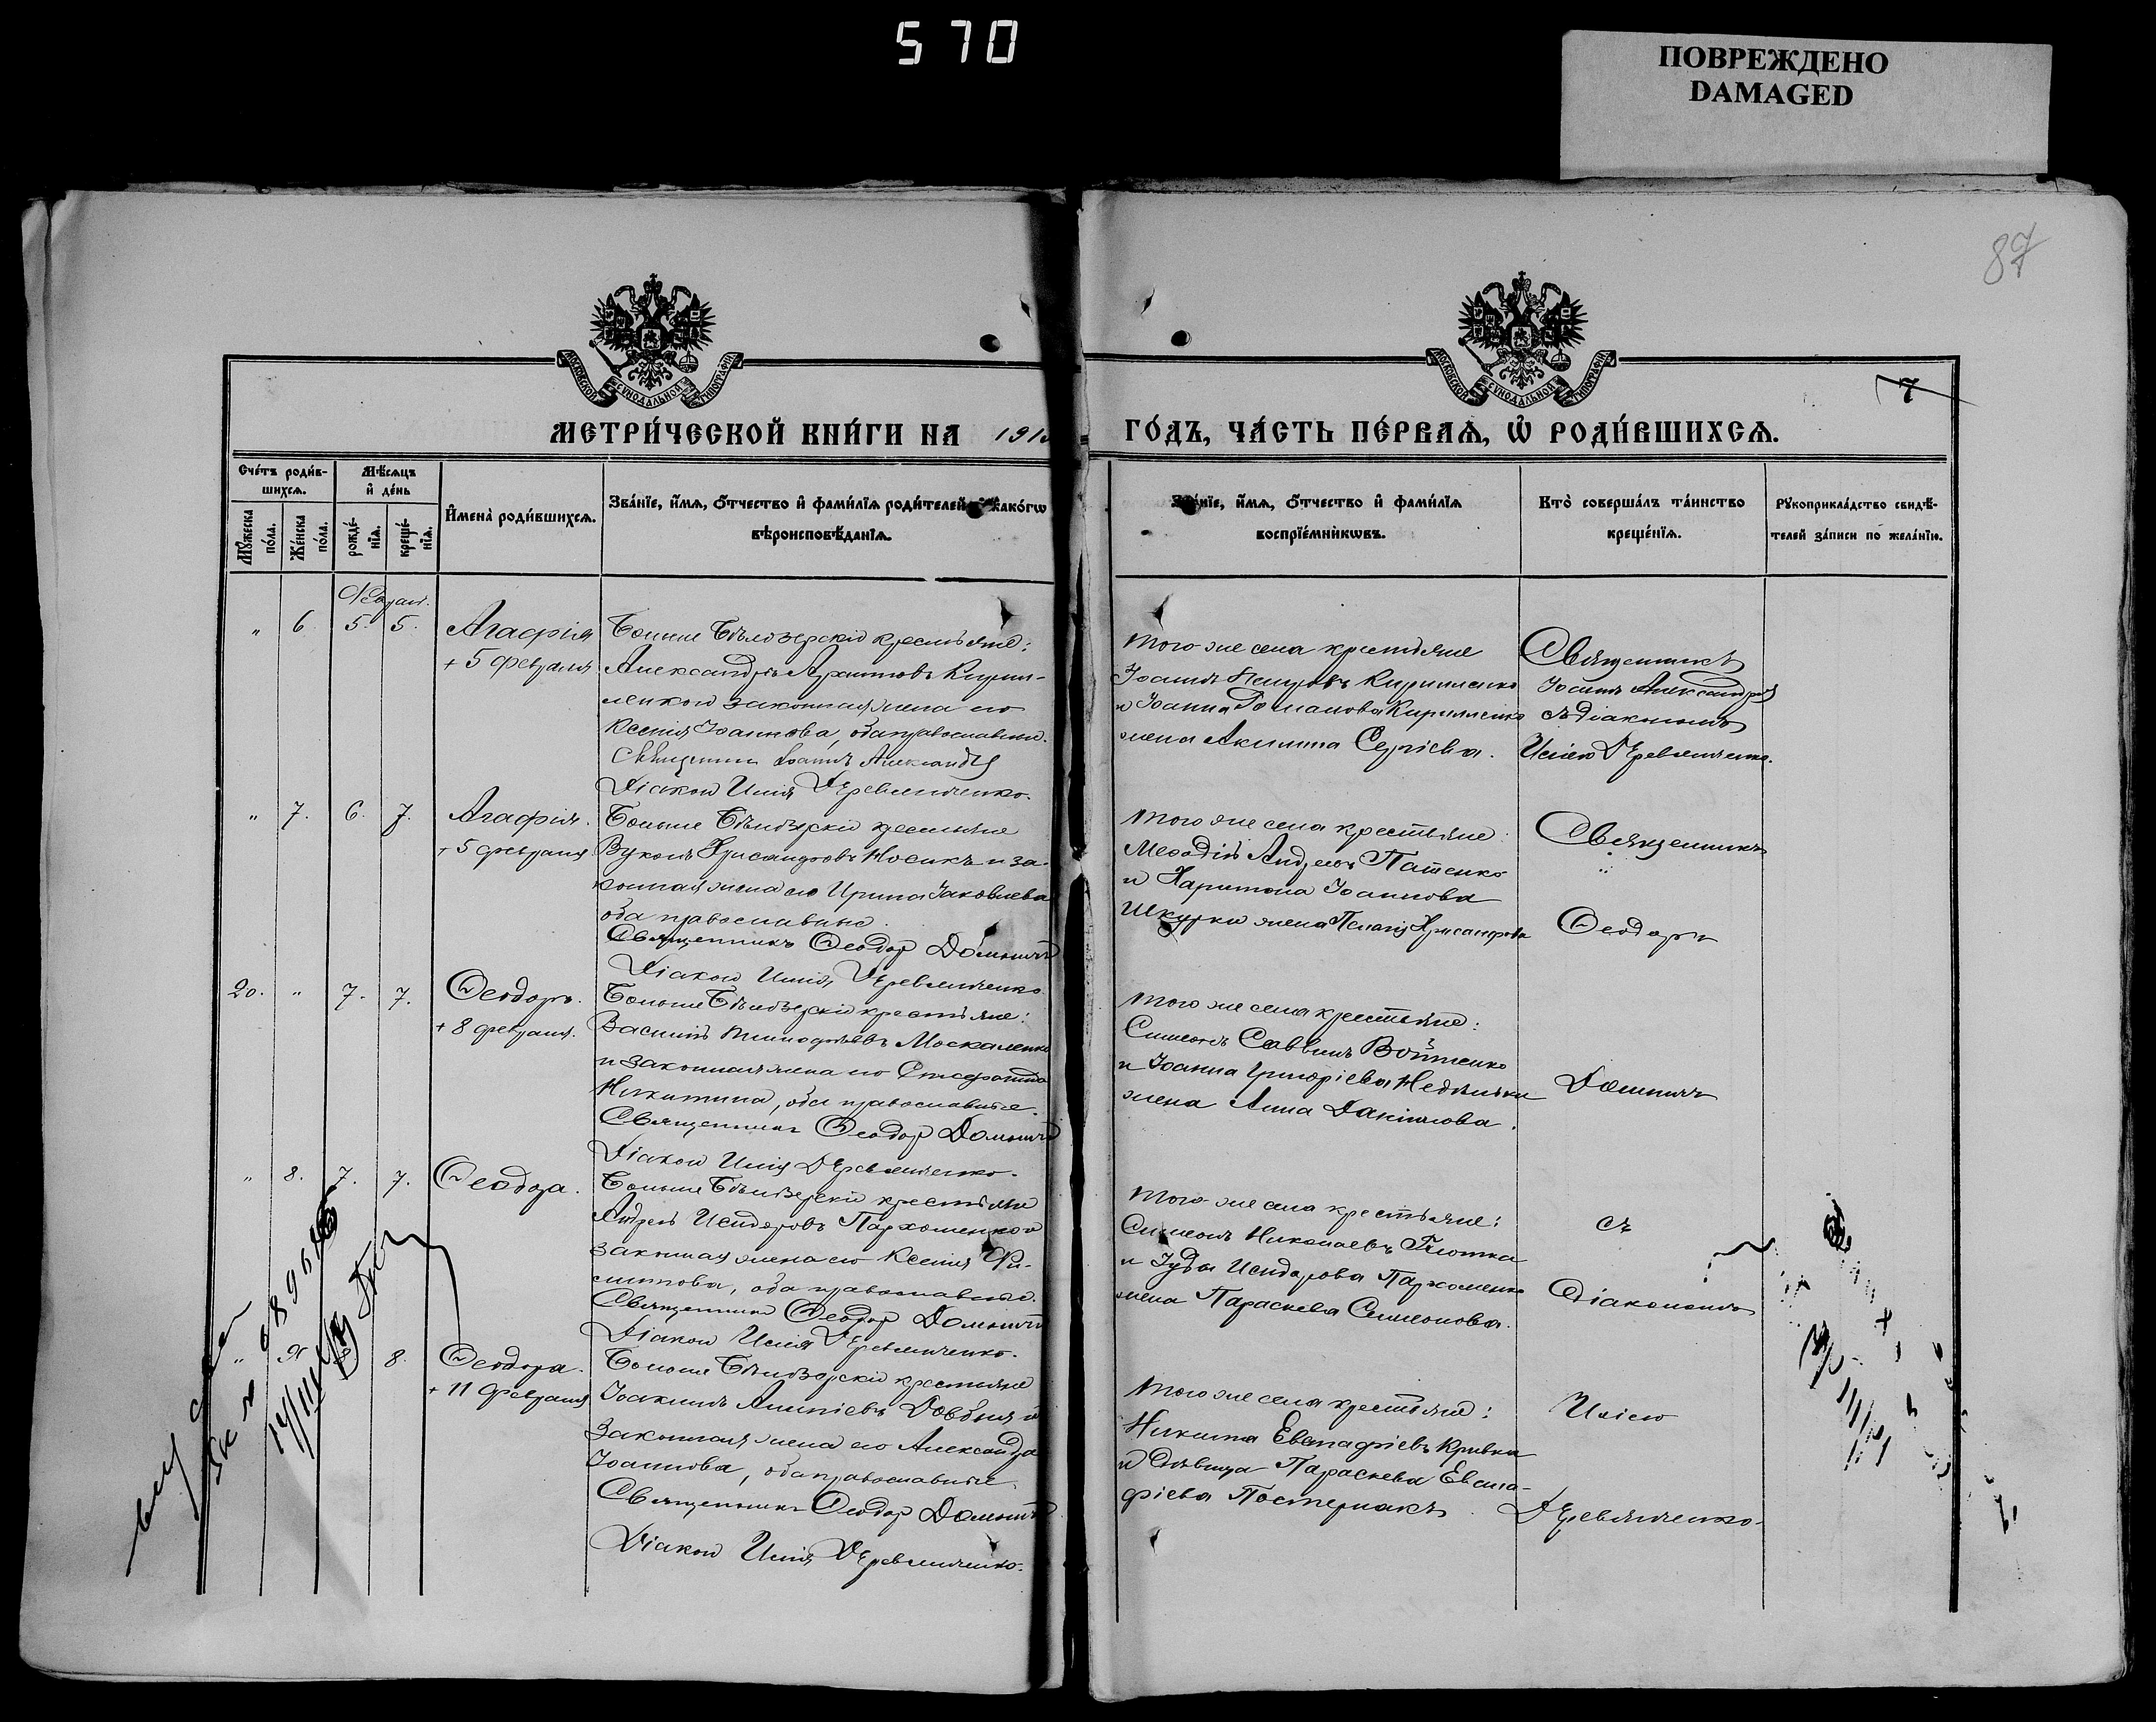 570
ПОВРЕЖДЕНО
DAMAGED
87
МОСКОВСКОЙ СѴНОДАЛЬНОЙ ТИПОГРАФІИ
МОСКОВСКОЙ СѴНОДАЛЬНОЙ ТИПОГРАФІИ
7
МЕТРИ́ЧЕСКОЙ КНИ́ГИ НА 191
ГО́ДЪ, ЧА́СТЬ ПЕ́РВАѦ, Ѡ҆ РОДИ́ВШИХСѦ.
Сче́тъ роди́в-
шихсѧ.
Мѣ́сѧцъ
и҆ де́нь
Мꙋ́жеска
по́ла.
Же́нска
по́ла.
рожде́-
нїѧ.
креще́-
нїѧ.
И҆мена̀ роди́вшихсѧ.
Зва́нїе, и҆́мѧ, ѻ҆́тчество и҆ фами́лїѧ роди́телей и҆ како́гѡ
вѣроисповѣ́данїѧ.
Зва́нїе, и҆́мѧ, ѻ҆́тчество и҆ фами́лїѧ
воспрїе́мникѡвъ.
Кто̀ соверша́лъ та́инство
креще́нїѧ.
Рꙋкоприкла́дство свидѣ́-
телей за́писи по жела́нїю.
" 6. 5. 5. Агафія
+ 5 февраля
Больше Бѣлозерскіе крестьяне:
Александръ Архиповъ Кирил-
ленко и законная жена его
Ксенія Іоаннова, оба православные.
Священникъ Іоаннъ Александр
Діаконъ Илія Деревянченко.
того же села крестьяне
Іоаннъ Петровъ Кирилленко
и Іоанна Романова Кирилленко
жена Акилина Сергіева.
Священникъ
Іоаннъ Александр
съ діакономъ
Иліею Деревянченко.
" 7. 6. 7. Агафія.
+ 5 февраля
Больше Бѣлозерскіе крестьяне
Вуколъ Хрисанфовъ Носикъ и за-
конная жена его Ирина Іаковлева
оба православные.
Священникъ Ѳеодор
Діаконъ Илія Деревянченко
того же села крестьяне:
Меѳодій Андреевъ Патенко
и Харитона Іоаннова
Шкурки жена Пелагія Хрисанфова
Священникъ
"
Ѳеодоръ
20. " 7. 7. Ѳеодоръ.
+ 8 февраля.
Больше Бѣлозерскіе крестьяне:
Василій Тимофеевъ Москаленко
и законная жена его
Никитина, оба православные.
Священникъ Ѳеодор
Діаконъ Илія Деревянченко.
того же села крестьяне:
Симеонъ Саввинъ Войтенко
и Іоанна Григоріева
жена Анна Даніилова.
" 8. 7. 7. Ѳеодора.
Больше Бѣлозерскіе крестьяне
Андрей Исидоровъ Пархоменко и
законная жена его Ксенія Фи-
липпова, оба православные.
Священникъ Ѳеодор
Діаконъ Илія Деревянченко.
того же села крестьяне:
Симеонъ Николаевъ
и Іуды Исидорова Пархоменко
жена Параскева Симеонова.
съ
Діакономъ
" 9. 8. Ѳеодора.
+ 11 февраля
Больше Бѣлозерскіе крестьяне
Іоакимъ Алипіевъ Довбня и
законная жена его Александра
Іоаннова, оба православные.
Священникъ Ѳеодор
Діаконъ Илія Деревянченко.
того же села крестьяне:
Никита Евстафіевъ Кривка
и дѣвица Параскева Евста-
фіева Постернакъ
Иліею
Деревянченко.